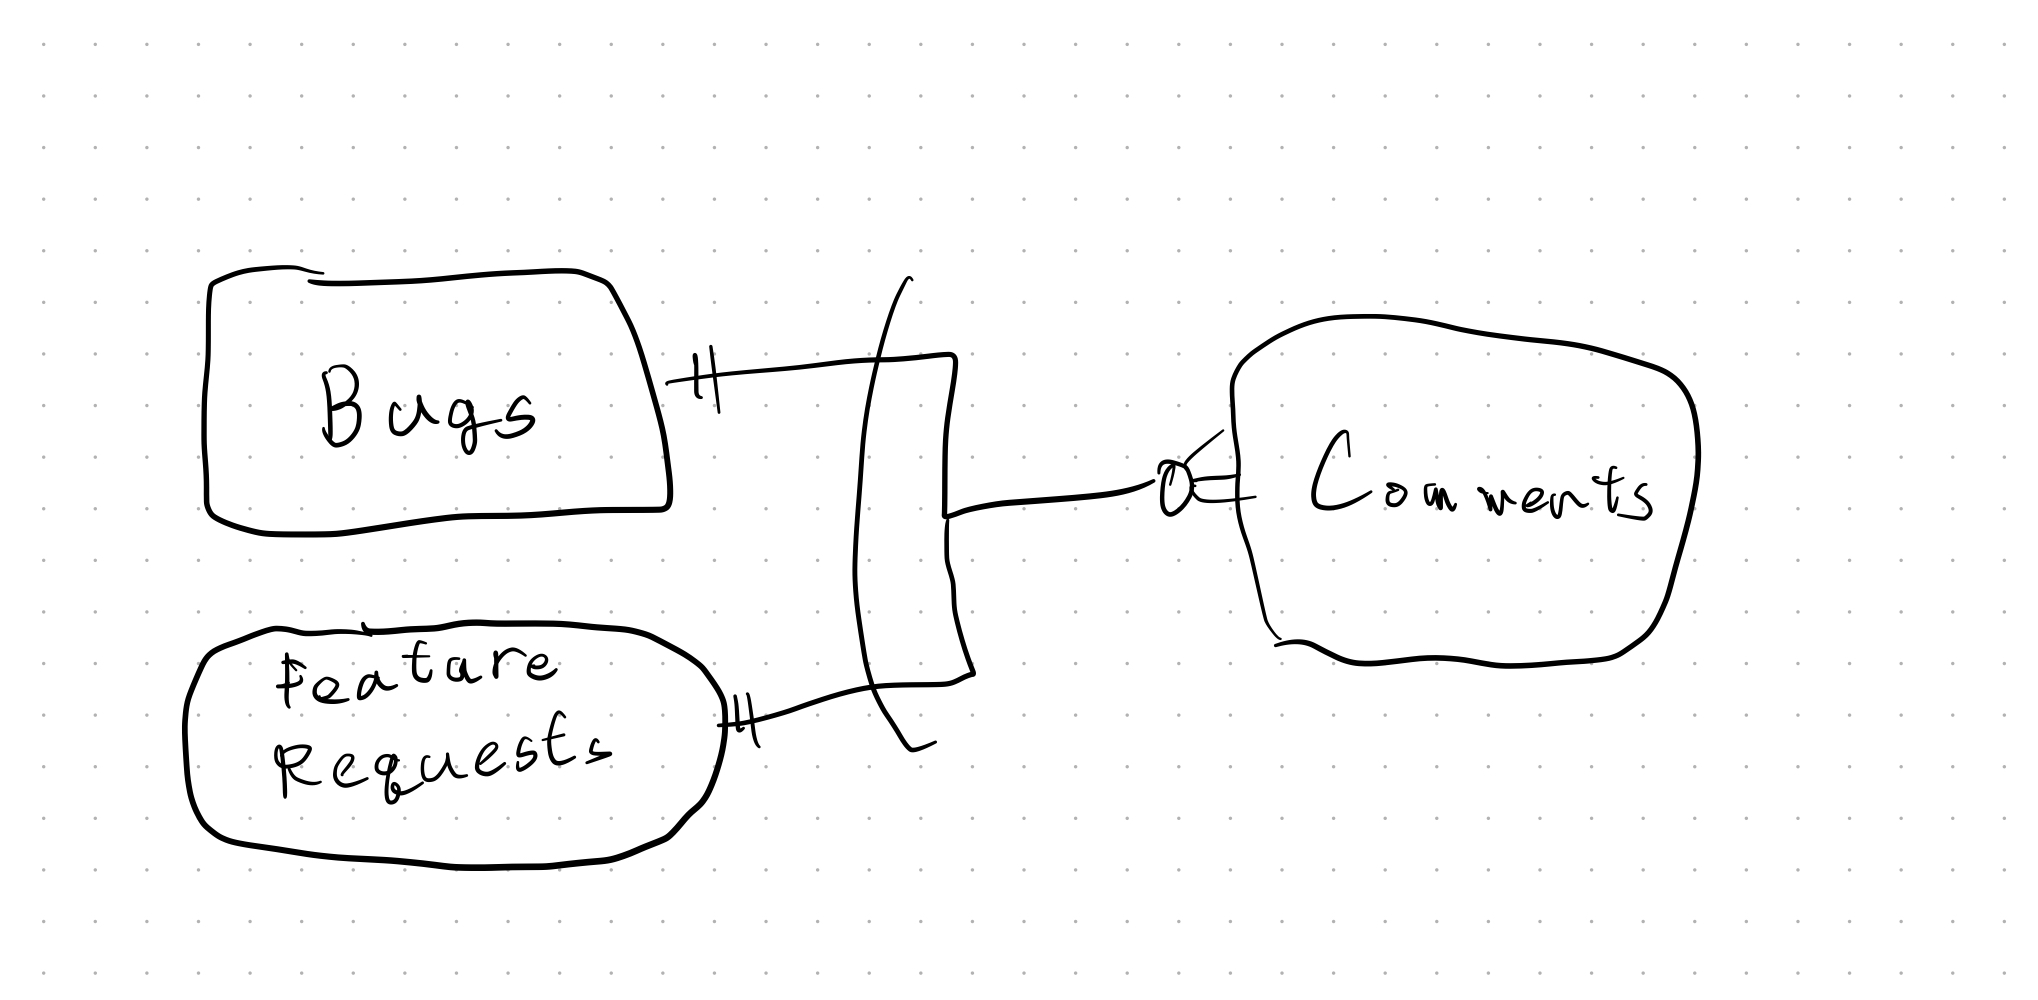 Bugs
Feature
Requests
Comments